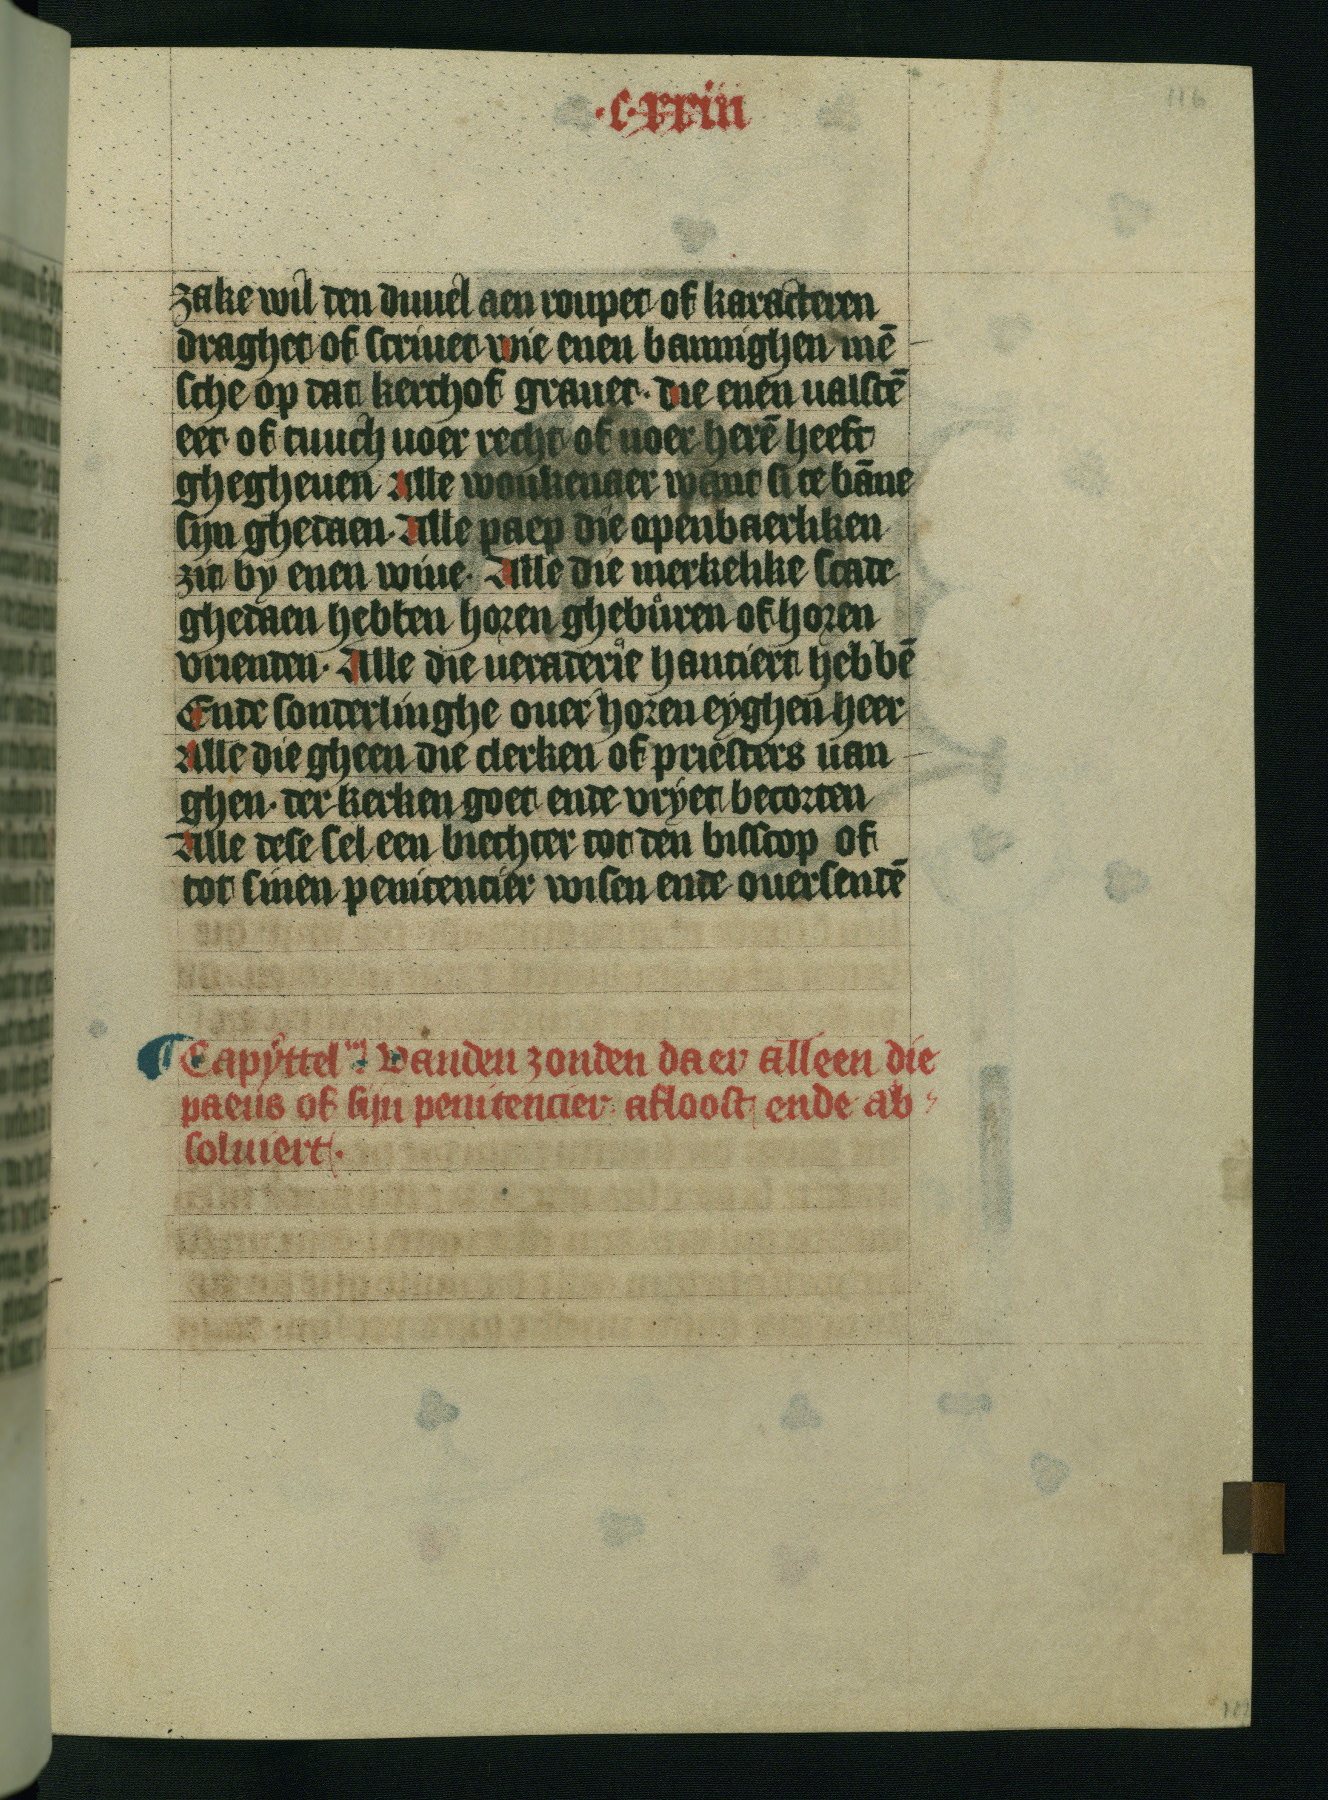 ·C·xxiiii
116
zake wil den duuel aen roupet of karacteren
draghet of scriuet wie enen bannighen mē
sche op dat kerchof grauet· die enen ualscē
eet of tuuch uoer recht of uoer herē heeft
ghegheuen Alle woukenaer want si te bāne
sijn ghedaen· Alle paep die openbaerliken
zit by enen wiue· Alle die merkelike scade
ghedaen hebben horen ghebůren of horen
vrienden· Alle die ueraderie hantiert hebbē
Ende sonderlinghe ouer horen eyghen heer
Alle die gheen die clerken of priesters uan
ghen· der kerken goet ende vryet becorten
Alle dese sel een biechter tot den bisscop of
tot sinen penitencier wisen ende ouersendē
Capyttel· vanden zonden daer alleen die
paeus of sijn penitencier afloost ende ab
soluiert·